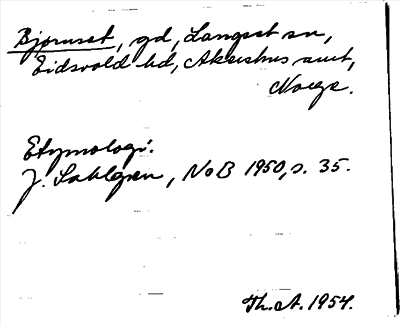 Bjørnset, gd, Langset sn,
Eidsvold hd, Akershus amt,
Norge.
Etymologi:
J. Sahlgren, NoB 1950, s. 35.
Th. A. 1954.